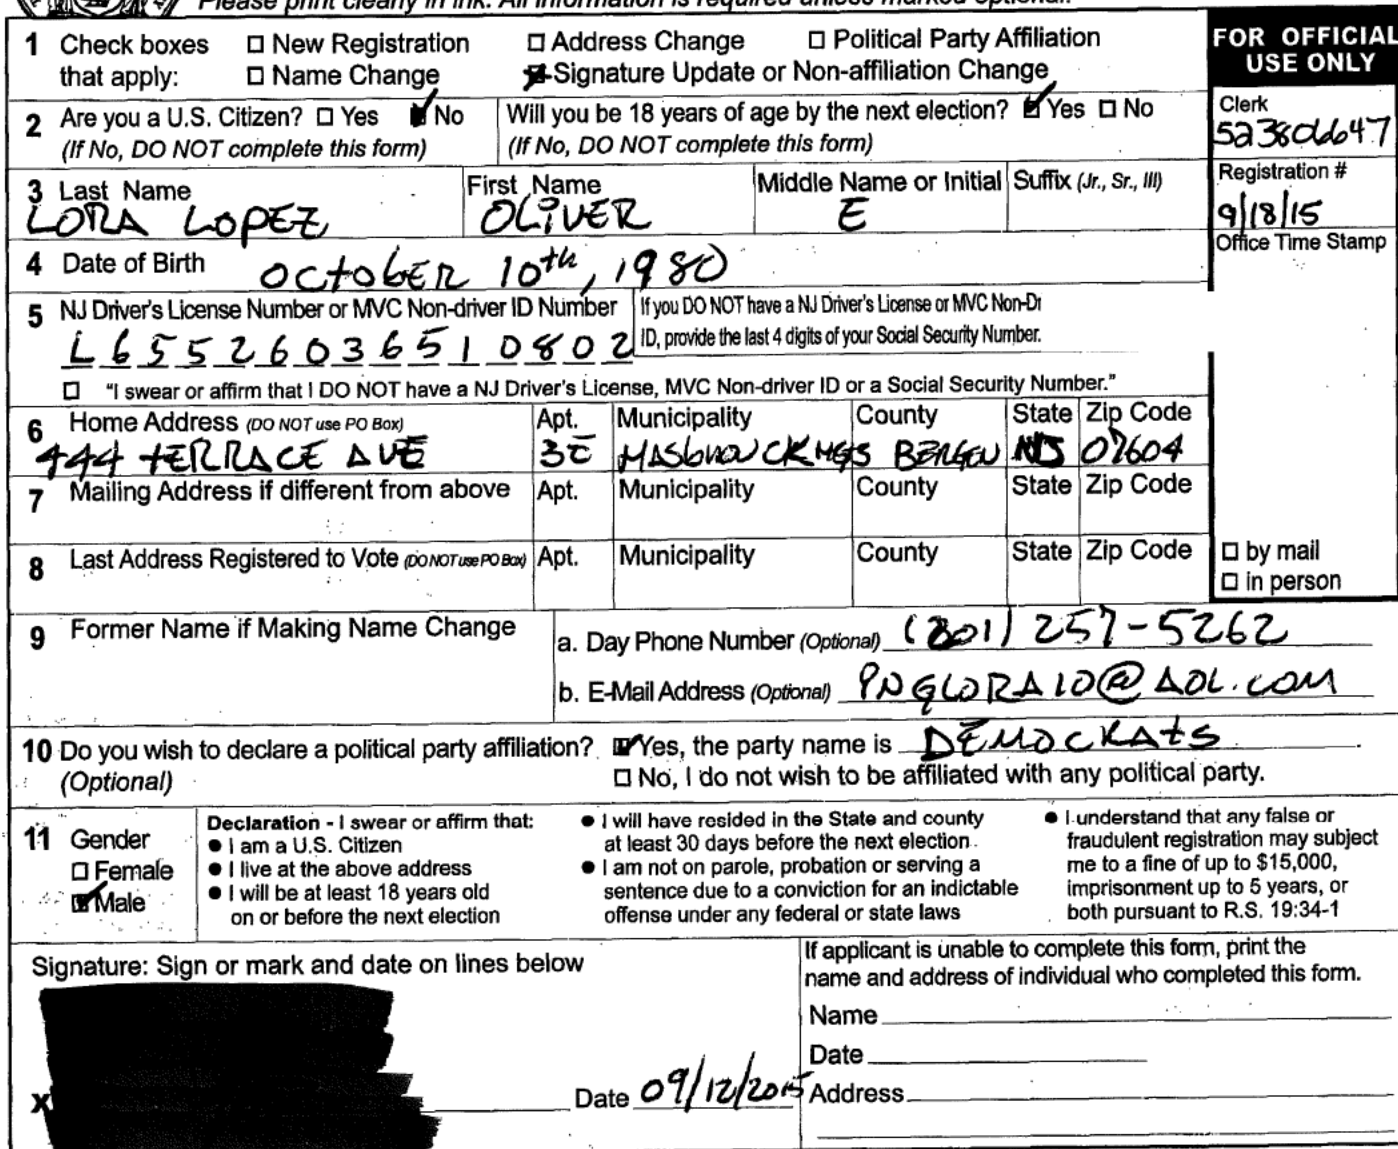 Please print clearly in ink. All information is required unless marked optional.
1 Check boxes that apply: ☐ New Registration ☐ Address Change ☐ Political Party Affiliation
☐ Name Change ☒ Signature Update or Non-affiliation Change
FOR OFFICIAL USE ONLY
2 Are you a U.S. Citizen? ☐ Yes ☑ No
(If No, DO NOT complete this form)
Will you be 18 years of age by the next election? ☑ Yes ☐ No
(If No, DO NOT complete this form)
Clerk
523806647
3 Last Name First Name Middle Name or Initial Suffix (Jr., Sr., III)
LORA LOPEZ OLIVER E
Registration #
9/18/15
Office Time Stamp
4 Date of Birth OCtOBER 10th, 1980
5 NJ Driver's License Number or MVC Non-driver ID Number
L6552603651 0802
If you DO NOT have a NJ Driver's License or MVC Non-Dr
ID, provide the last 4 digits of your Social Security Number.
☐ "I swear or affirm that I DO NOT have a NJ Driver's License, MVC Non-driver ID or a Social Security Number."
6 Home Address (DO NOT use PO Box) Apt. Municipality County State Zip Code
444 tERRACE AVE 3E HASbrOUCK HGS BERGEN NJ 07604
7 Mailing Address if different from above Apt. Municipality County State Zip Code
8 Last Address Registered to Vote (DO NOT use PO Box) Apt. Municipality County State Zip Code
☐ by mail
☐ in person
9 Former Name if Making Name Change
a. Day Phone Number (Optional) (201) 257-5262
b. E-Mail Address (Optional) @AOL.com
10 Do you wish to declare a political party affiliation? ☑ Yes, the party name is DEMOCKRAtS
(Optional) ☐ No, I do not wish to be affiliated with any political party.
11 Gender
☐ Female
☑ Male
Declaration - I swear or affirm that:
● I am a U.S. Citizen
● I live at the above address
● I will be at least 18 years old
on or before the next election
● I will have resided in the State and county
at least 30 days before the next election
● I am not on parole, probation or serving a
sentence due to a conviction for an indictable
offense under any federal or state laws
● I understand that any false or
fraudulent registration may subject
me to a fine of up to $15,000,
imprisonment up to 5 years, or
both pursuant to R.S. 19:34-1
Signature: Sign or mark and date on lines below
X Date 09/12/2015
If applicant is unable to complete this form, print the
name and address of individual who completed this form.
Name
Date
Address